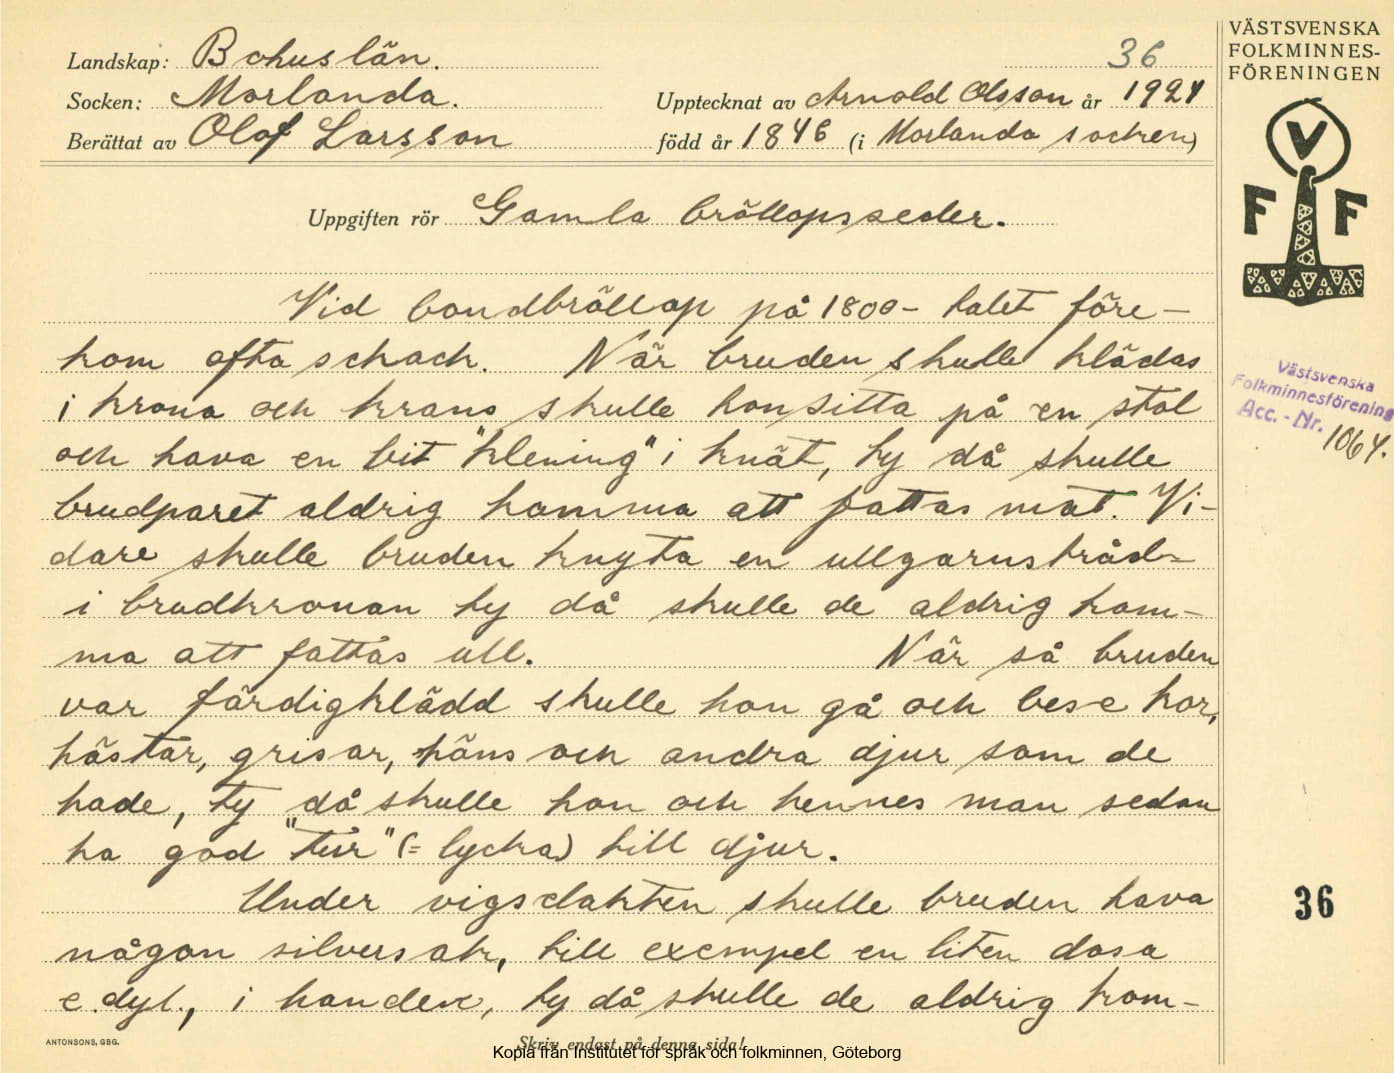 Landskap: Bohuslän.
36
Socken: Morlanda.
Upptecknat av Arnold Olsson år 1924
Berättat av Olof Larsson
född år 1846 (i Morlanda socken)
Uppgiften rör Gamla bröllopsseder.
Vid bondbröllop på 1800-talet före-
kom ofta schack. När bruden skulle klädas
i krona och krans skulle hon sitta på en stol
och hava en bit "klening" i knät, ty då skulle
brudparet aldrig komma att fattas mat. Vi-
dare skulle bruden knyta en ullgarnstråd
i brudkronan ty då skulle de aldrig kom-
ma att fattas ull. När så bruden
var färdigklädd skulle hon gå och bese kor,
hästar, grisar, höns och andra djur som de
hade, ty då skulle hon och hennes man sedan
ha god "tur" (= lycka) till djur.
Under vigselakten skulle bruden hava
någon silversak, till exempel en liten dosa
e.dyl., i handen, ty då skulle de aldrig kom-
ANTONSONS, GBG.
Skriv endast på denna sida!
Kopia från Institutet för språk och folkminnen, Göteborg
VÄSTSVENSKA
FOLKMINNES-
FÖRENINGEN
V
F F
Västsvenska
Folkminnesförening
Acc. - Nr. 1064.
36